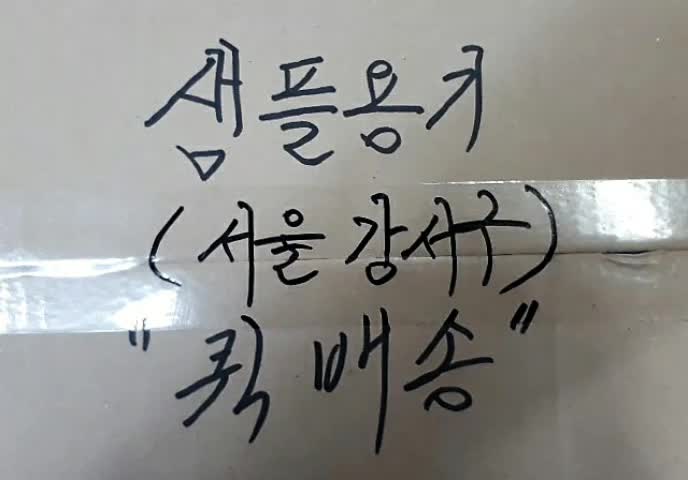 샘플용기
(서울 강서구)
"퀵 배송"